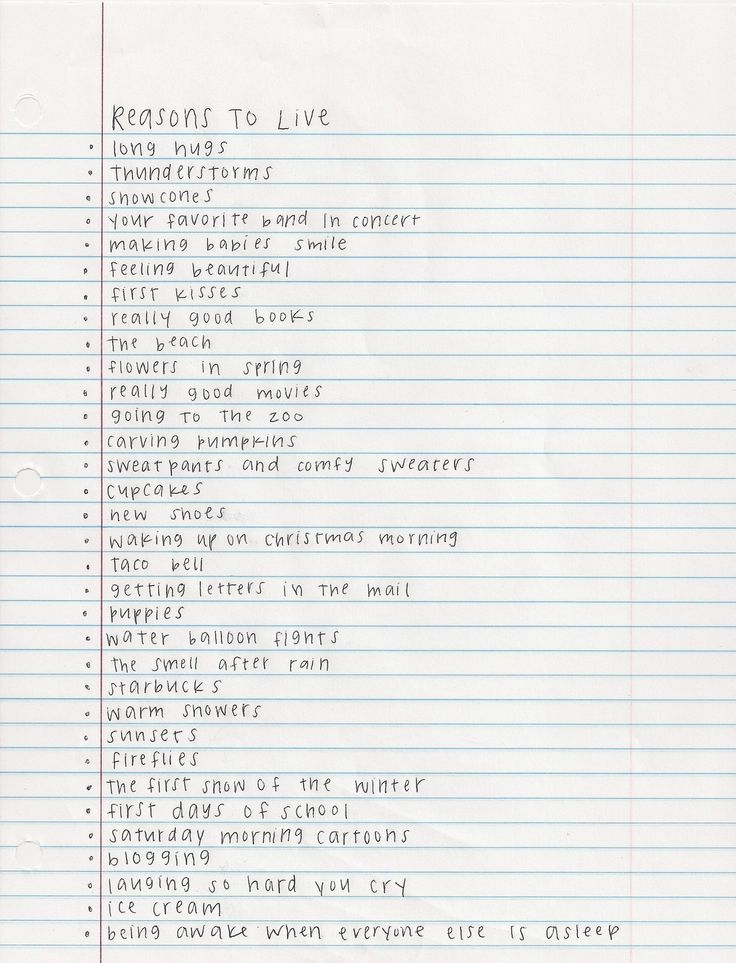 Reasons To Live
• long hugs
• thunderstorms
• snowcones
• your favorite band in concert
• making babies smile
• feeling beautiful
• first kisses
• really good books
• the beach
• flowers in spring
• really good movies
• going to the zoo
• carving pumpkins
• sweatpants and comfy sweaters
• cupcakes
• new shoes
• waking up on christmas morning
• taco bell
• getting letters in the mail
• puppies
• water balloon fights
• the smell after rain
• starbucks
• warm showers
• sunsets
• fireflies
• the first snow of the winter
• first days of school
• saturday morning cartoons
• blogging
• lauging so hard you cry
• ice cream
• being awake when everyone else is asleep